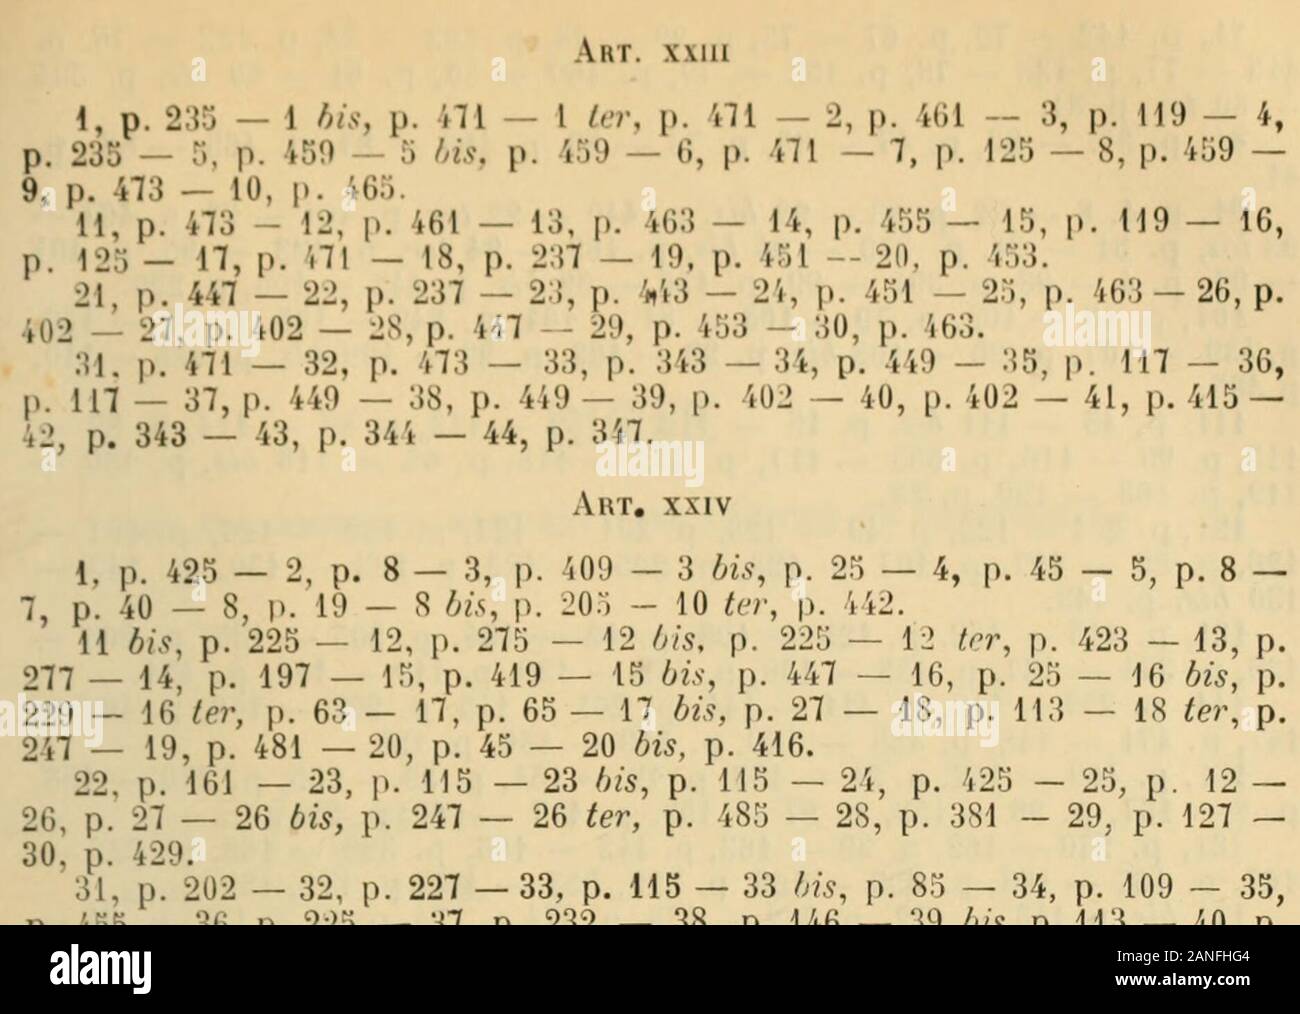 ART. XXIII
1, p. 235 — 1 bis, p. 471 — 1 ter, p. 471 — 2, p. 461 — 3, p. 119 — 4,
p. 235 — 5, p. 459 — 5 bis, p. 459 — 6, p. 471 — 7, p. 125 — 8, p. 459 —
9, p. 473 — 10, p. 465.
11, p. 473 — 12, p. 461 — 13, p. 463 — 14, p. 455 — 15, p. 119 — 16,
p. 125 — 17, p. 471 — 18, p. 237 — 19, p. 451 — 20, p. 453.
21, p. 447 — 22, p. 237 — 23, p. 443 — 24, p. 451 — 25, p. 463 — 26, p.
402 — 27, p. 402 — 28, p. 447 — 29, p. 453 — 30, p. 463.
31, p. 471 — 32, p. 473 — 33, p. 343 — 34, p. 449 — 35, p. 117 — 36,
p. 117 — 37, p. 449 — 38, p. 449 — 39, p. 402 — 40, p. 402 — 41, p. 415 —
42, p. 343 — 43, p. 344 — 44, p. 347.
ART. XXIV
1, p. 425 — 2, p. 8 — 3, p. 409 — 3 bis, p. 25 — 4, p. 45 — 5, p. 8 —
7, p. 40 — 8, p. 19 — 8 bis, p. 205 — 10 ter, p. 442.
11 bis, p. 225 — 12, p. 275 — 12 bis, p. 225 — 12 ter, p. 423 — 13, p.
277 — 14, p. 197 — 15, p. 419 — 15 bis, p. 447 — 16, p. 25 — 16 bis, p.
229 — 16 ter, p. 63 — 17, p. 65 — 17 bis, p. 27 — 18, p. 113 — 18 ter, p.
247 — 19, p. 481 — 20, p. 45 — 20 bis, p. 416.
22, p. 161 — 23, p. 115 — 23 bis, p. 115 — 24, p. 425 — 25, p. 12 —
26, p. 27 — 26 bis, p. 247 — 26 ter, p. 485 — 28, p. 381 — 29, p. 127 —
30, p. 429.
31, p. 202 — 32, p. 227 — 33, p. 115 — 33 bis, p. 85 — 34, p. 109 — 35,
p. 455 — 36, p. 225 — 37, p. 232 — 38, p. 146 — 39 bis, p. 113 — 40, p.
alamy
Image ID: 2ANFHG4
www.alamy.com